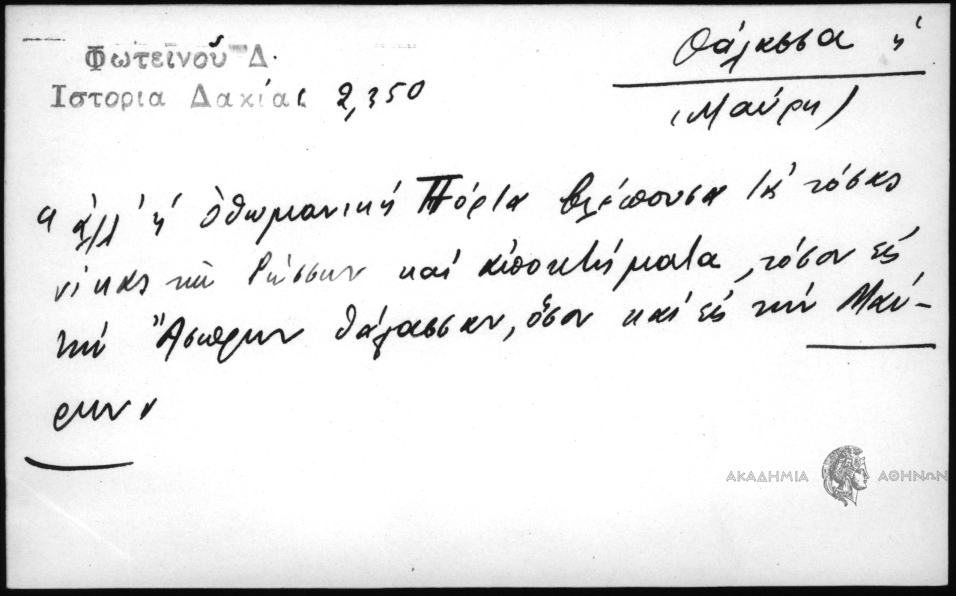 Φωτεϊνοῦ Δ.
Ιστορια Δακίας 2,350
Θάλασσα ἡ
(Μαύρη)
"ἀλλ' ἡ ὀθωμανικὴ Πόρτα βλέπουσα τὰς τόσας
νίκας τῶν Ρώσσων καὶ ἀποκτήματα, τόσον εἰς
τὴν Ἄσπρην θάλασσαν, ὅσον καὶ εἰς τὴν Μαύ-
ρην"
ΑΚΑΔΗΜΙΑ ΑΘΗΝΩΝ